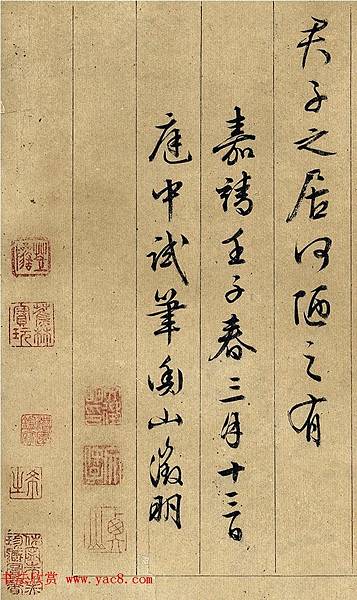 君子之居何陋之有
嘉靖壬子春三月十三日
庭中試筆衡山徵明
书法欣赏 www.yac8.com